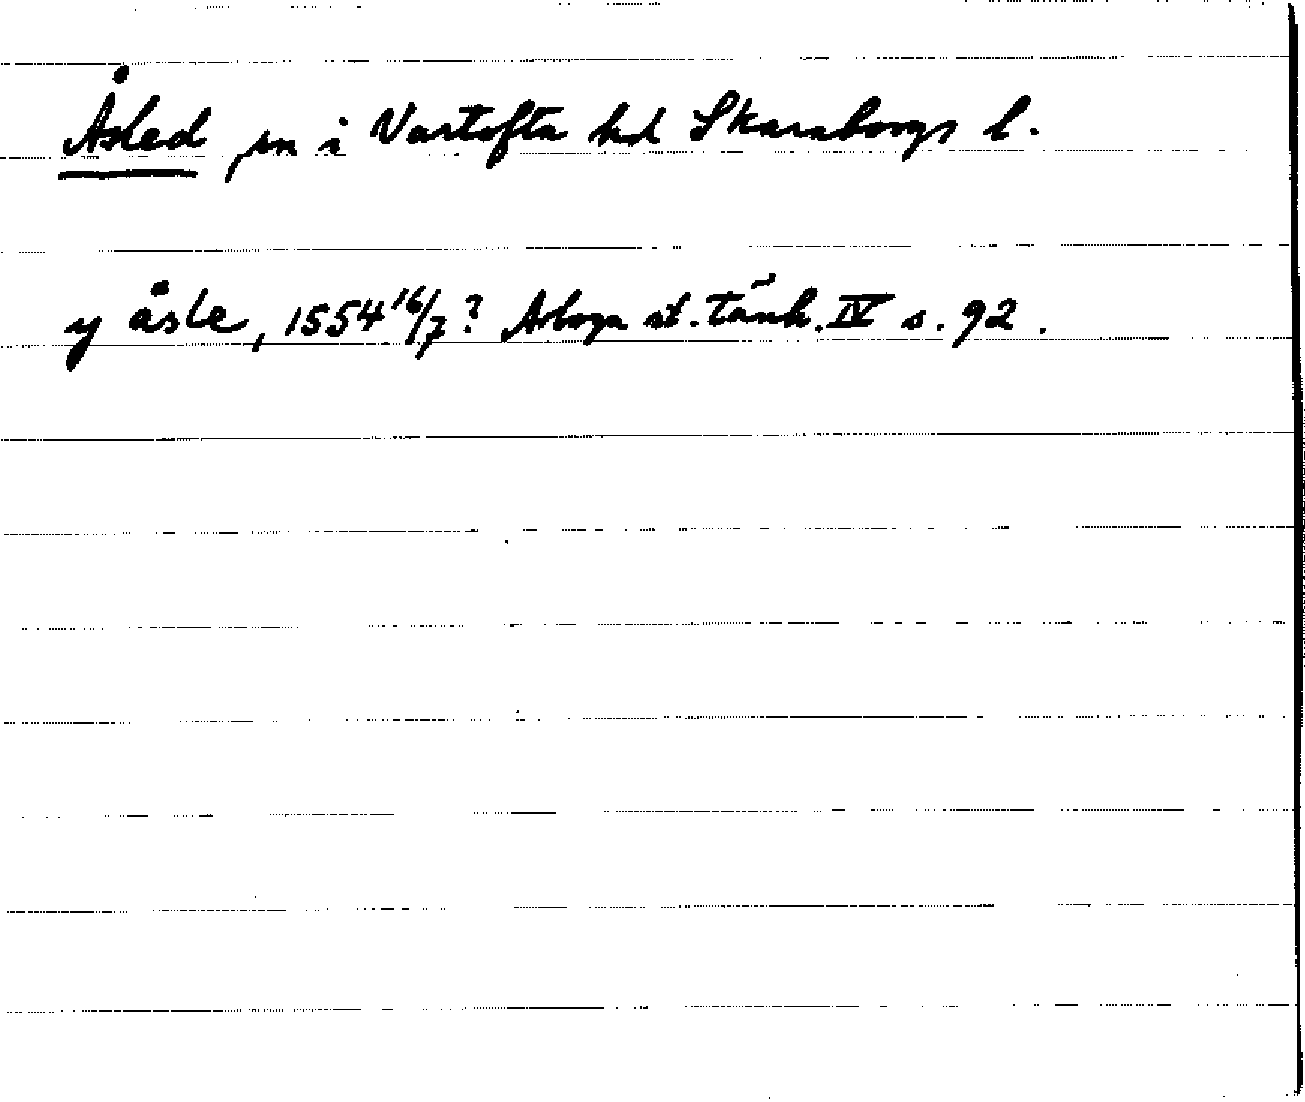 Åsled sn i Vartofta hd Skaraborgs l.
y åsle, 1554 16/7? Arboga st. tänk. IV s. 92.